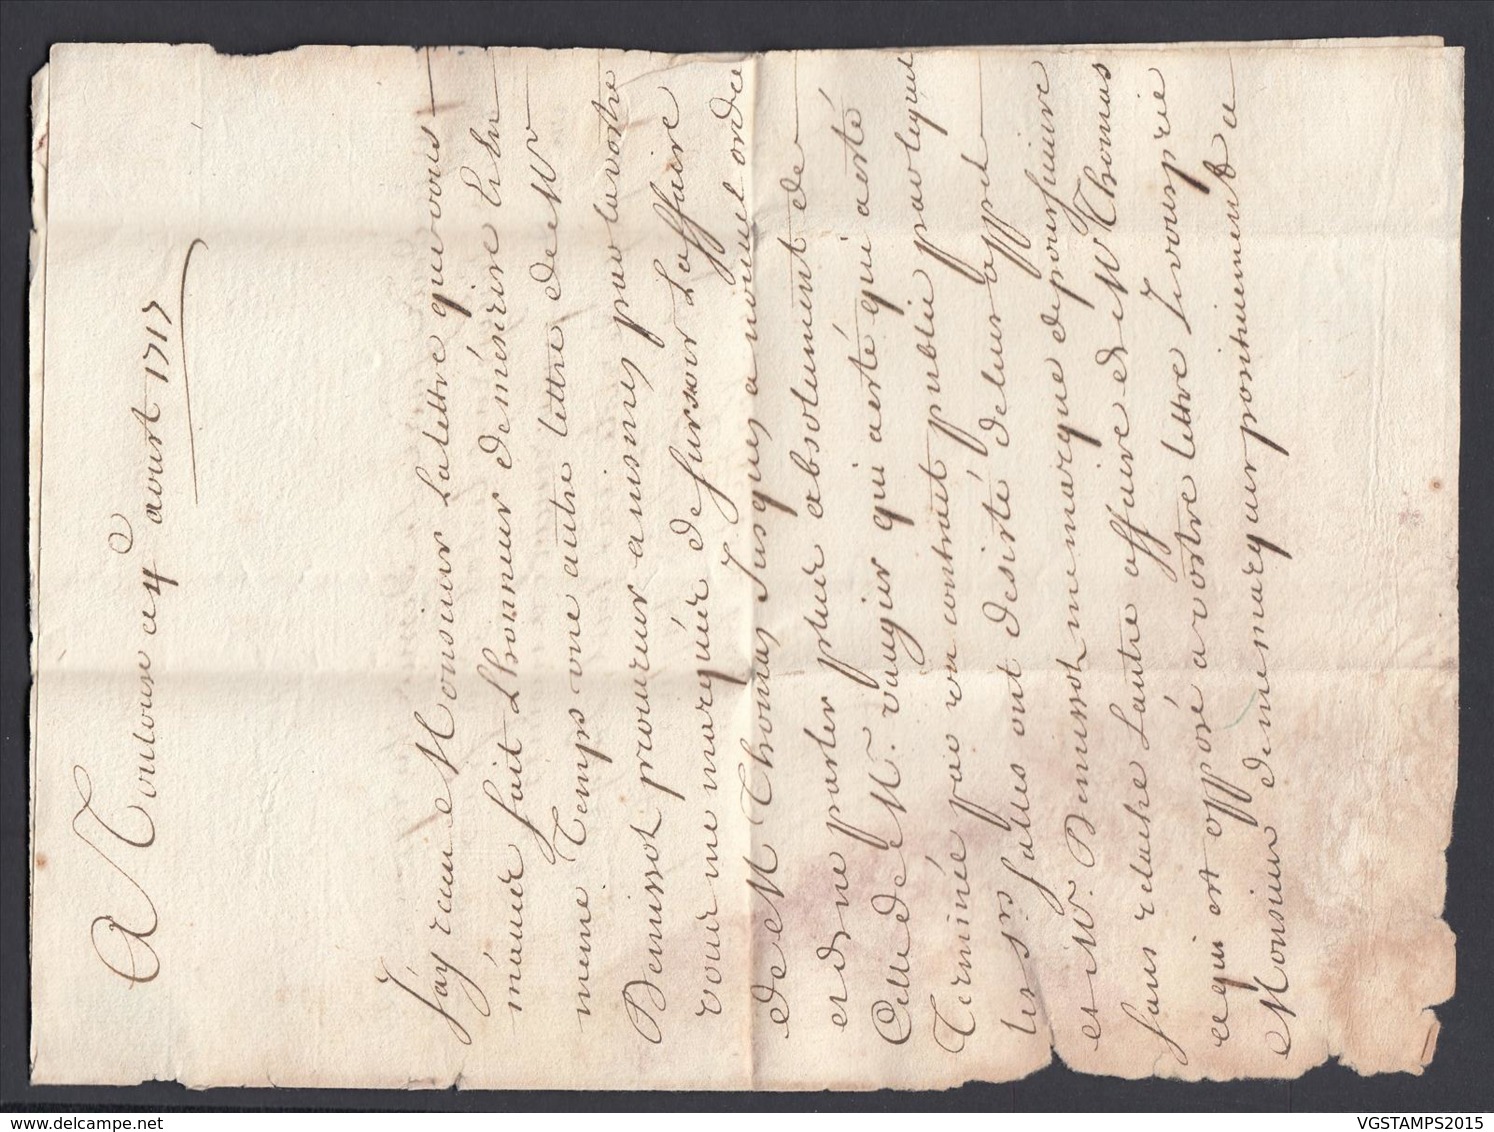 A Toulouse ce 4e aoust 1717
J'ay receu Monsieur La lettre que vous
m'avez fait L'honneur de m'écrire Et En
meme Temps une autre lettre de Mr
Benissot procureur a nismes par la vostre
vous me marquéz de surseoir L'affaire
de Mr Thomas Jusques a nouvel ordre
et de ne parler plus absolument de
Celle de Mr. vaugier qui a esté qui a esté
Terminée par un contrat public par lequel
les Srs salles ont desisté de leur appel
et Mr. Benissot me marque de poursuivre
sans relache Lautre affaire de Mr Thomas
ce qui est opposé a vostre lettre Je vous prie
Monsieur de me marquer positivement ce
VGSTAMPS2015